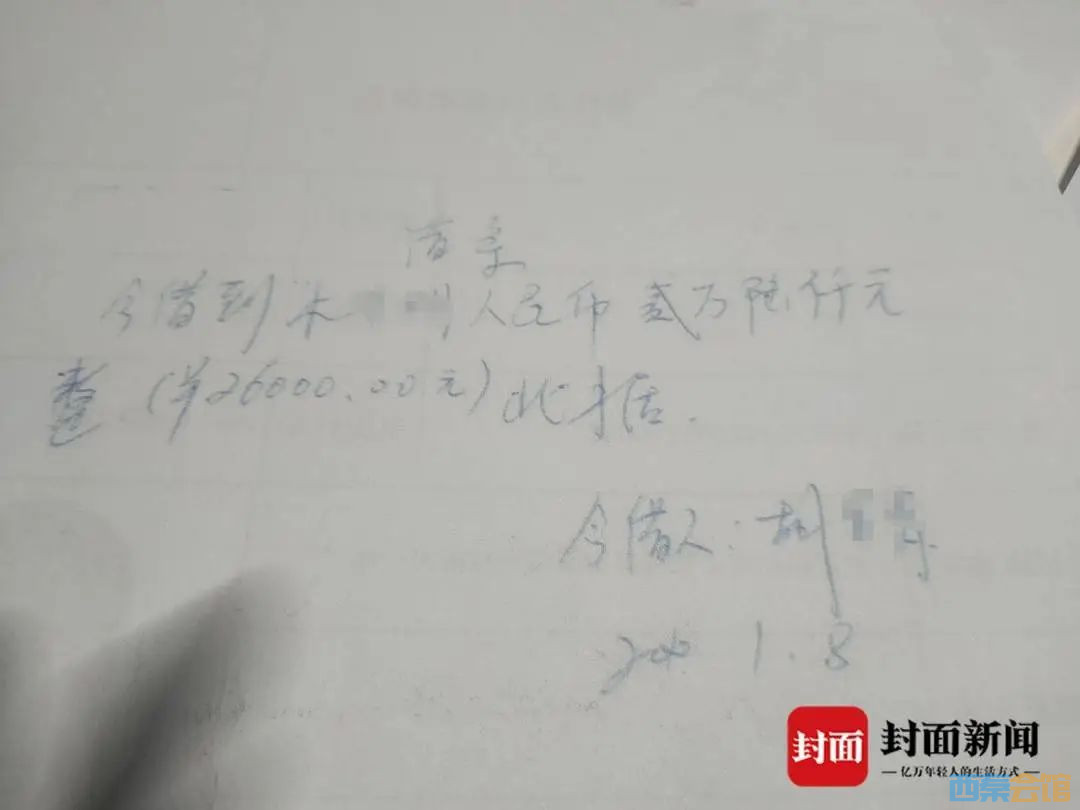 借条
今借到木 人民币贰万陆仟元
整(¥26000.00元)此才据.
今借人:胡
1.8
封面 封面新闻
亿万年轻人的生活方式
西秦会馆